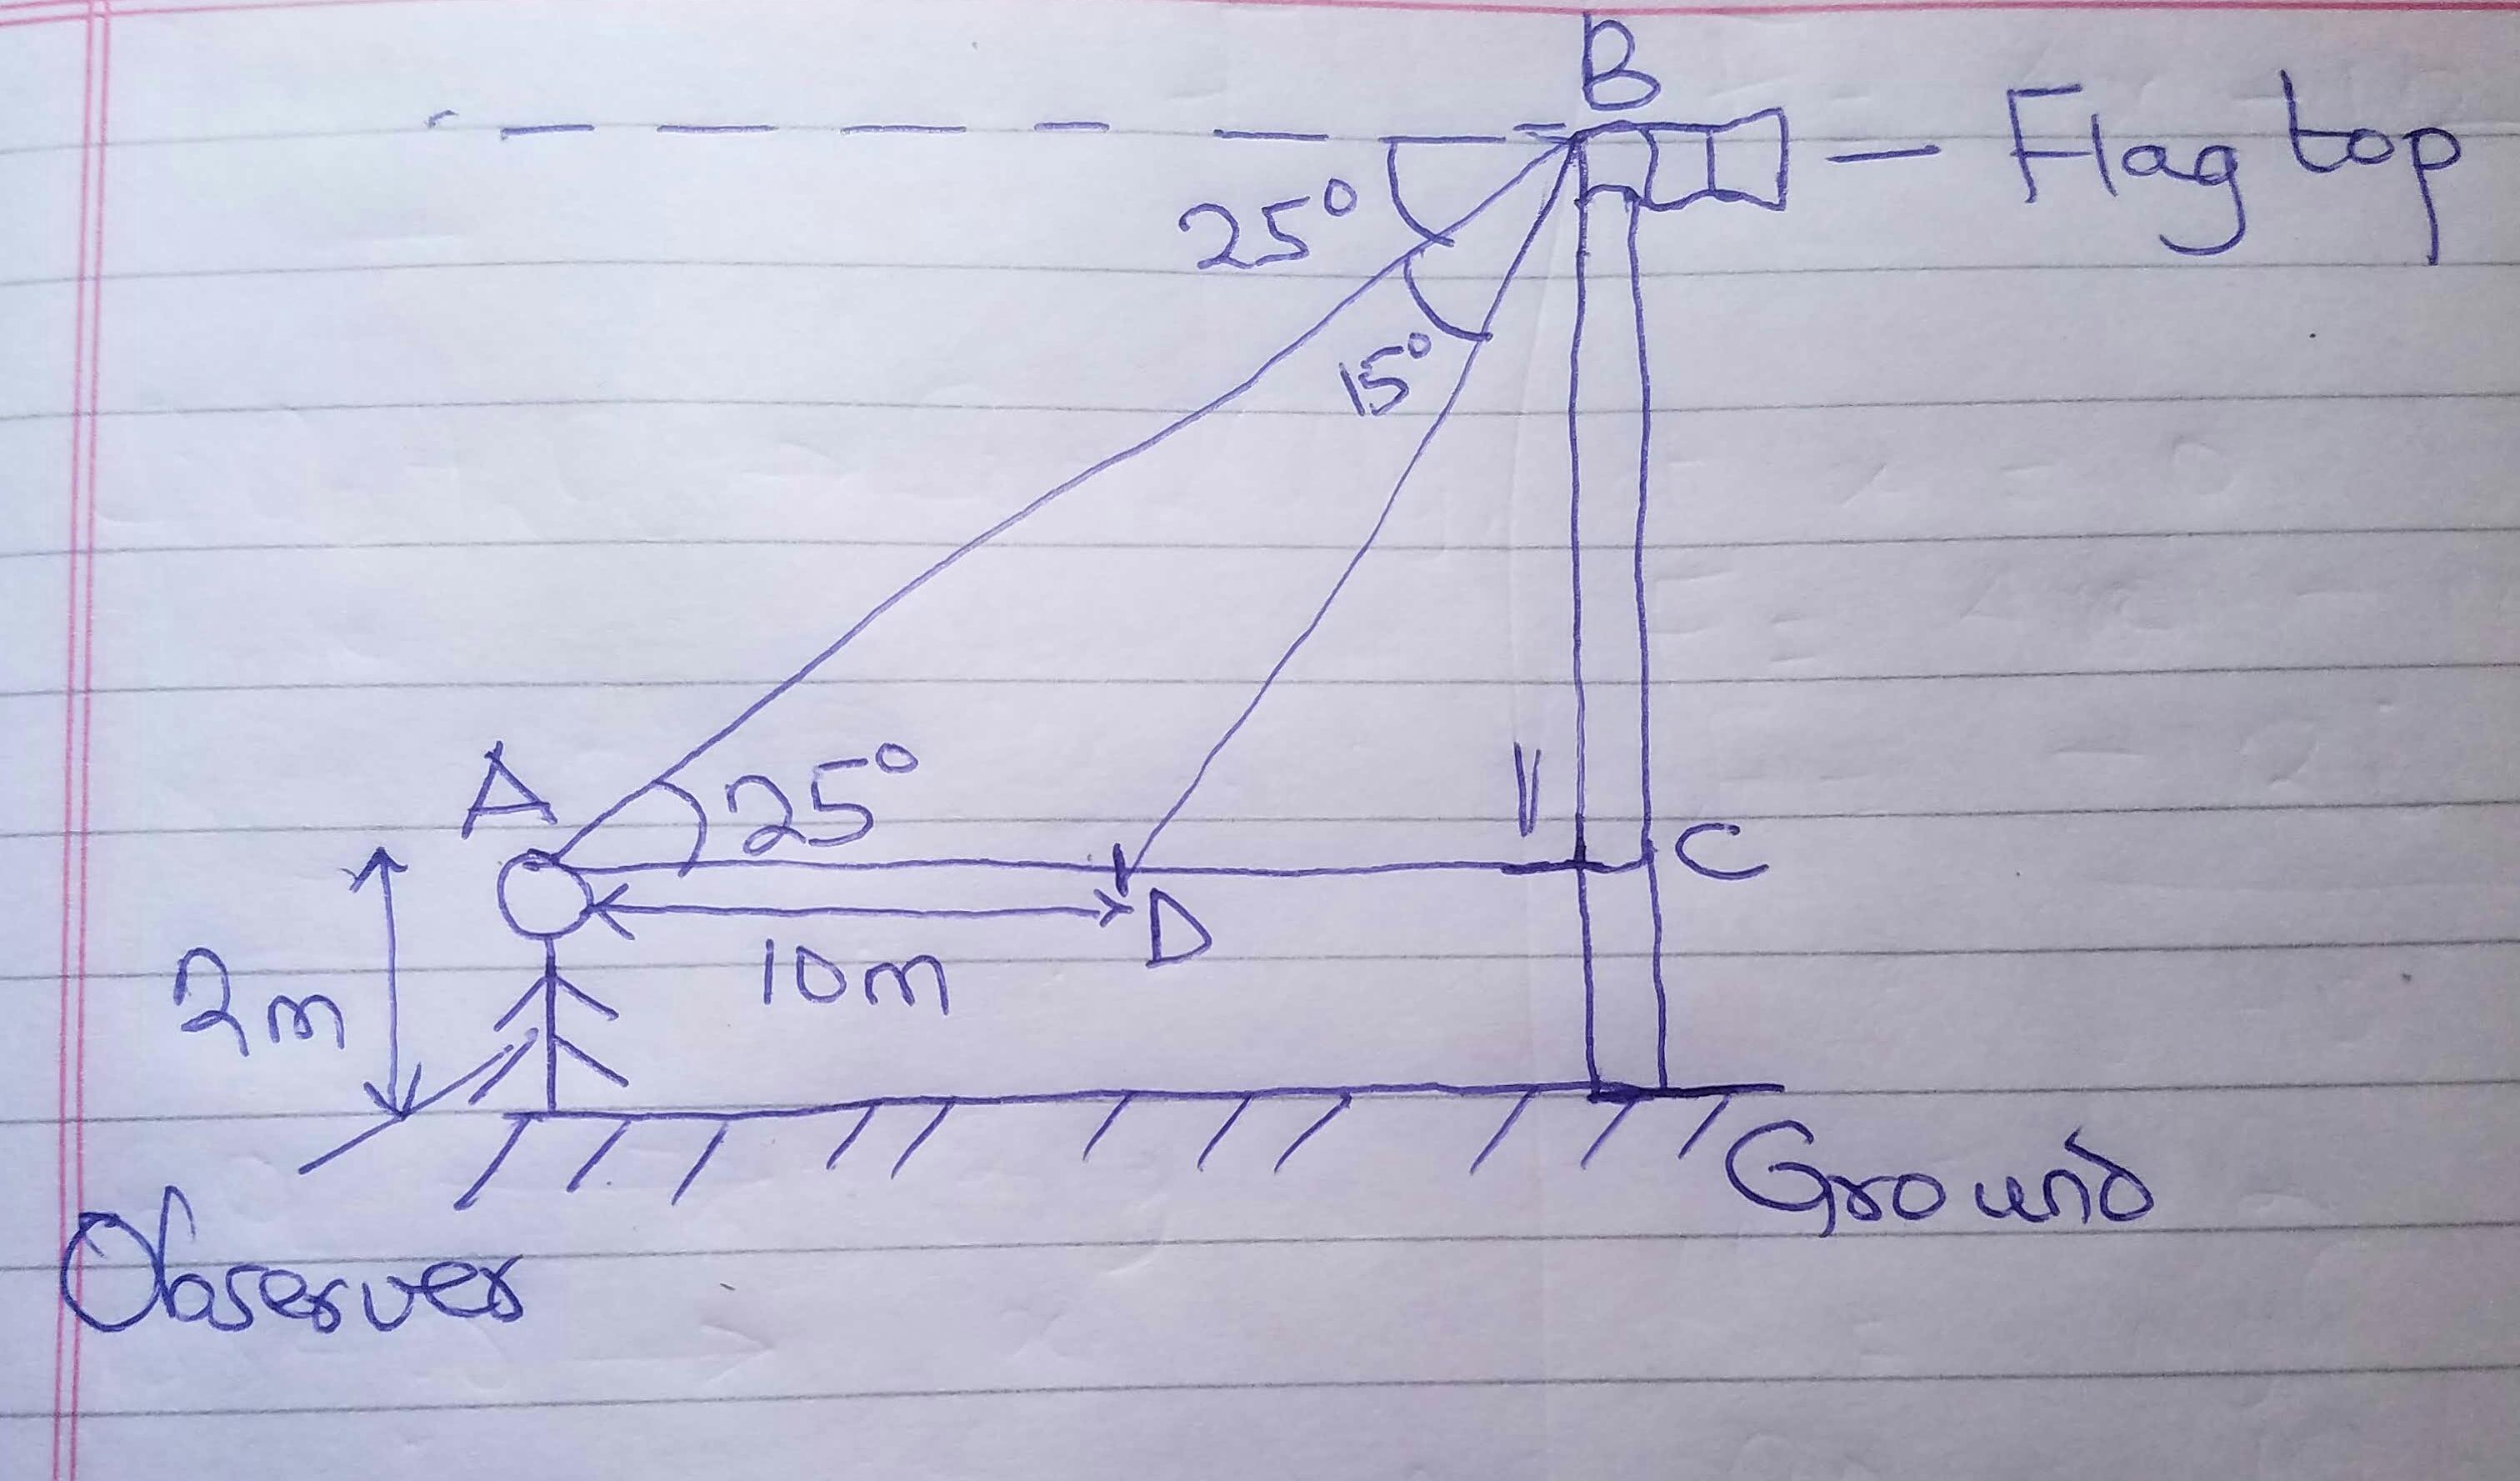 B
Flag top
25°
15°
A
25°
C
D
10m
2m
Ground
Observer